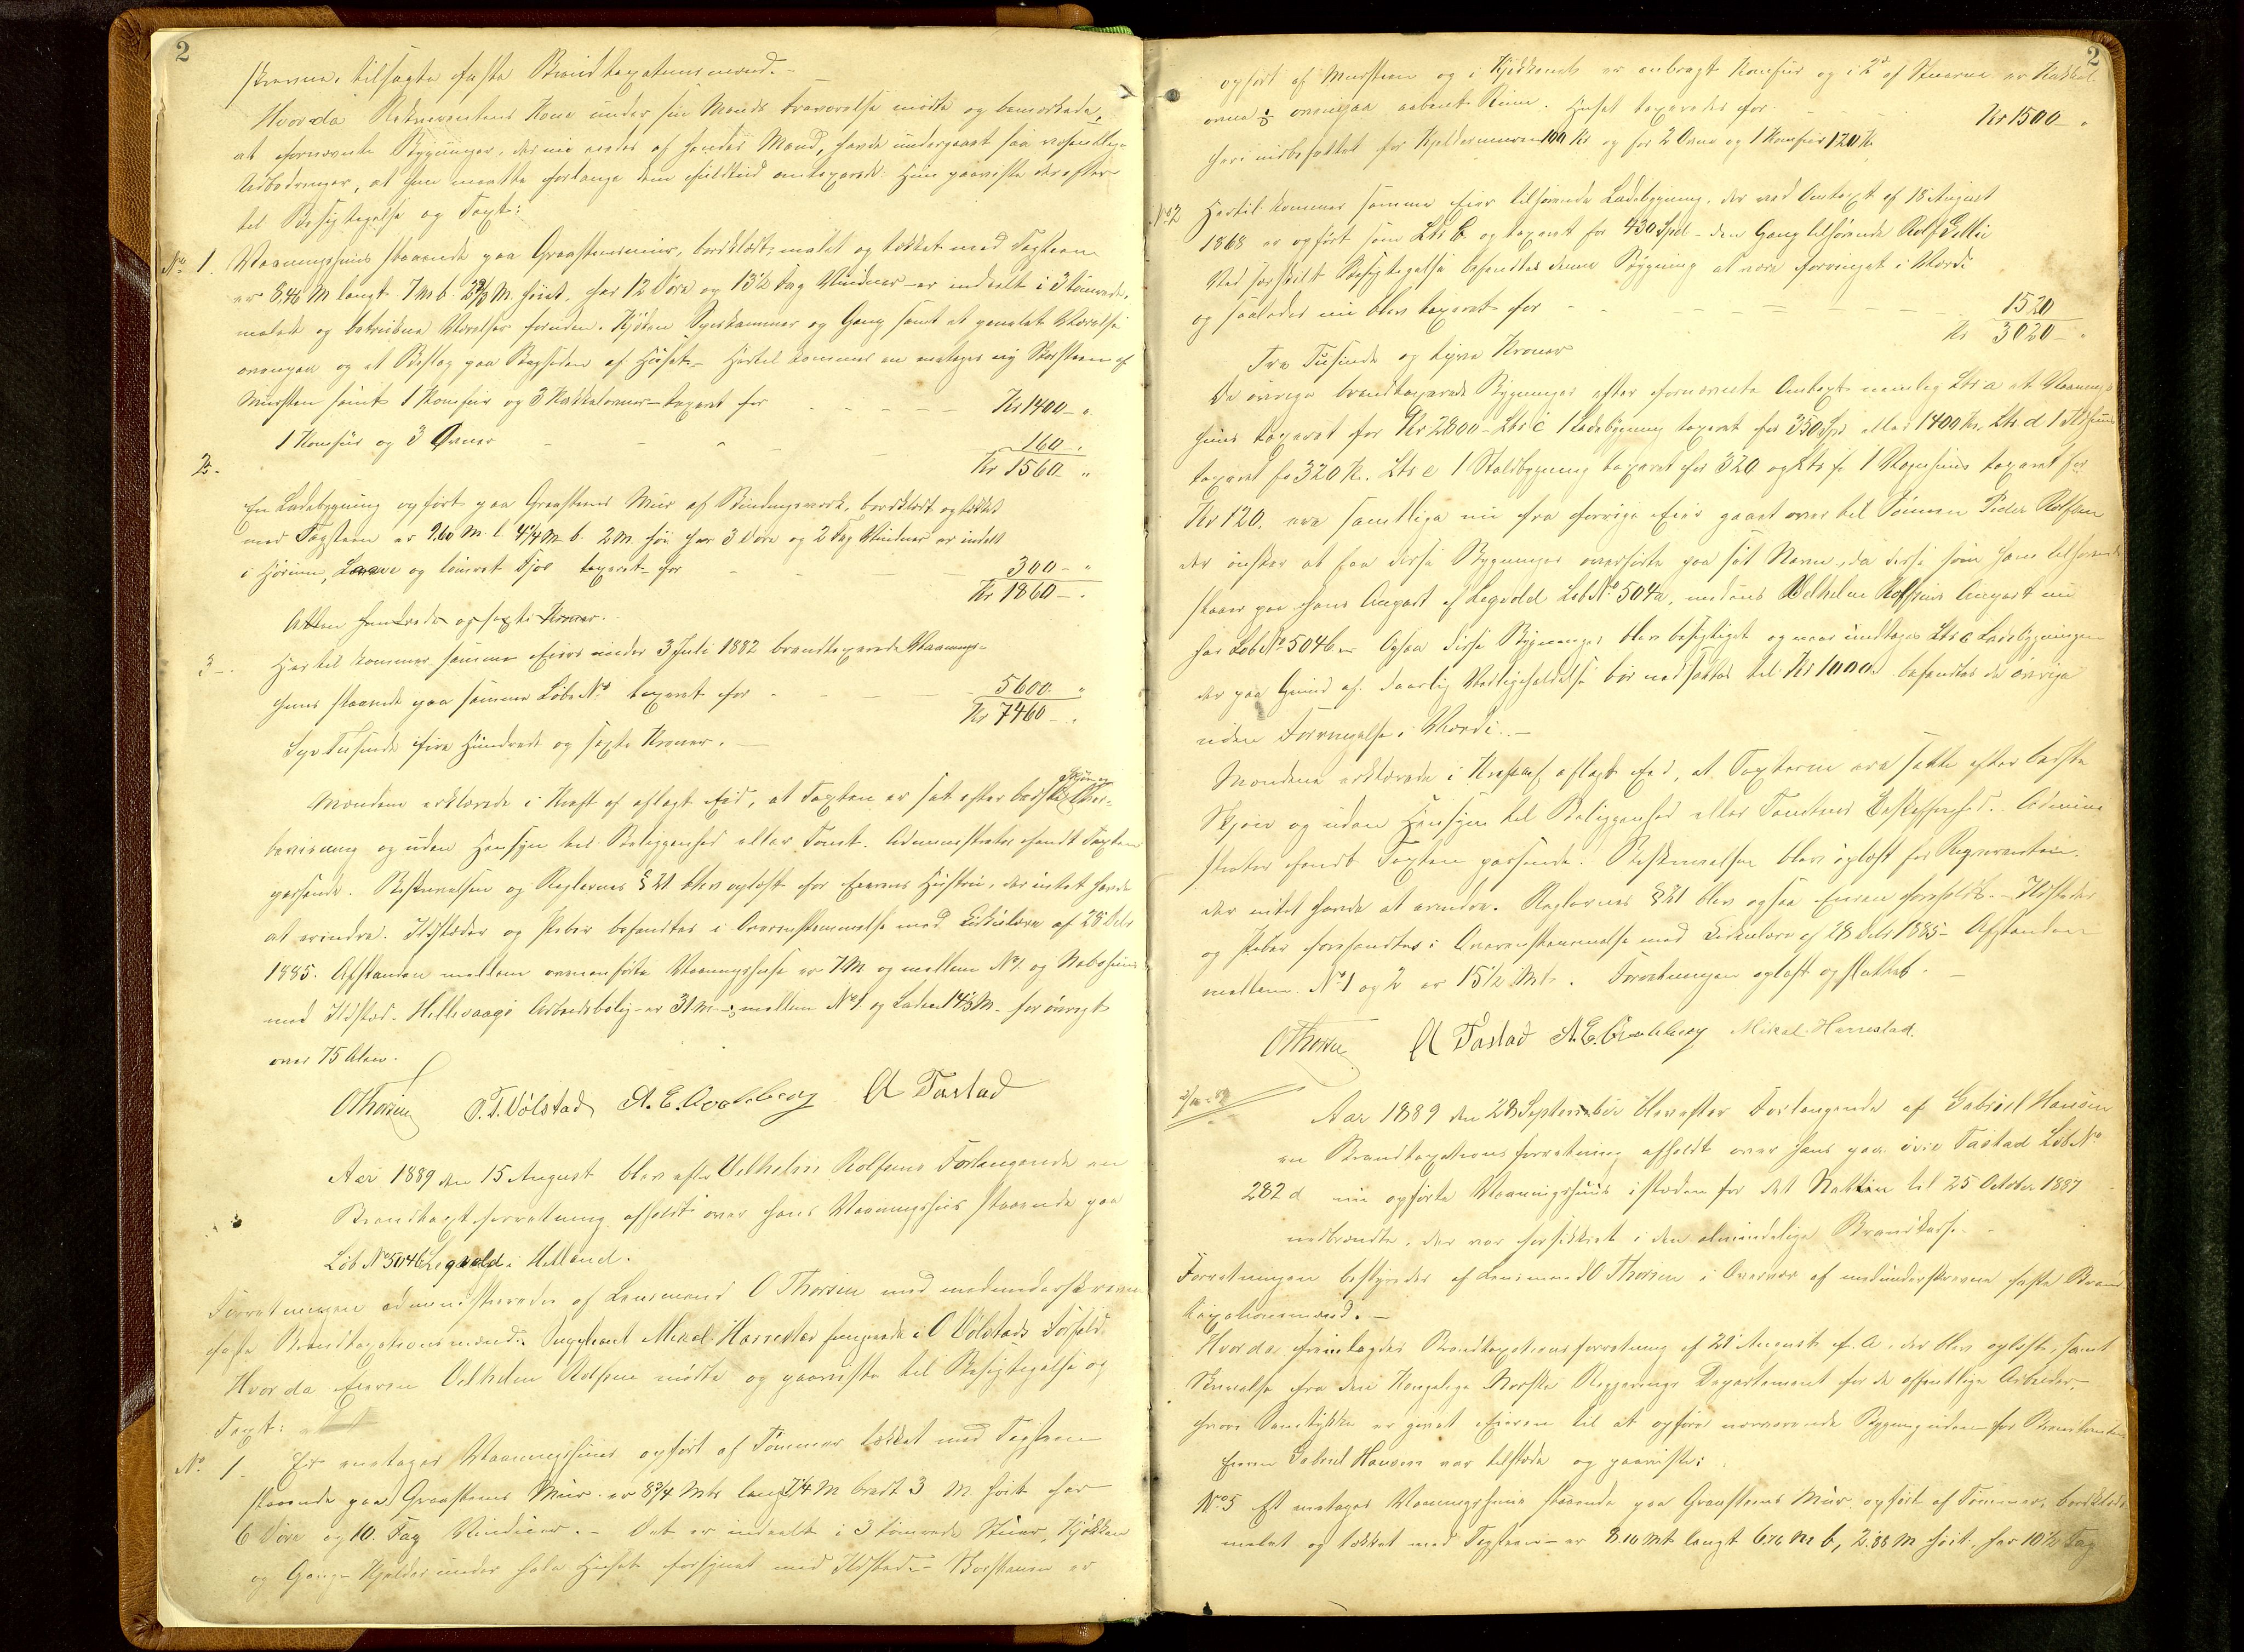 2
skrevne, tilsagte faste Brandtaxationsmænd. -
Hvorda Rekvirentens Kone under sin Mands fraværelse mødte og bemærkede,
at fornævnte Bygninger, der nu eiedes af hendes Mand, havde undergaaet saa væsentlige
Udbedringer, at hun maatte forlange dem fuldtud omtaxerede. Hun paaviste derefter
til Besigtigelse og Taxt:
No. 1. Vaaningshuus staaende paa Graasteensmuur, bordklædt, malet og tækket med Tagsteen
er 8,46 M langt 7 M b. M. høit, har 12 Døre og 13½ Fag Vinduer - er inddelt i 3 tømrede,
malede og betrukne Værelser forneden. Kjøken Spiskammer og Gang samt et panelet Værelse
ovenpaa og et Beslag paa Bagsiden af Huset. - Hertil kommer en etages ny Skorsteen af
Mursten samt 1 Komfur og 3 Kakkelovner - taxeret for - - - - Kr 1400 - "
1 Komfur og 3 Ovner - - - 160 - "
Kr 1560 - "
2.
En Ladebygning opført paa Graasteens Muur af Bindingsværk, bordklædt og tækket
med Tagsteen er 9.60 M. l. 4¼ M b. 2 M. høi har 3 Døre og 2 Fag Vinduer er indelt
i Hørum, Laave og tømret Fjøs taxeret for - - - 300 - "
Kr 1860 - "
Atten Hundrede og sexti Kroner.
3 - Hertil kommer samme Eiers under 3 Juli 1882 brandtaxerede Vaanings-
huus staaende paa samme Løbe No. taxeret for - - - 5600 "
Kr 7460 - "
Syv Tusinde fire Hundrede og sexti Kroner. -
Mændene erklærede i Kraft af aflagt Eed, at Taxten er sat efter bedste Skjøn og Over-
beviisning og uden Hensyn til Beliggenhed eller Tomt. Administrator fandt Taxten
passende. Beskrivelsen og Reglernes § 21 blev oplæst for Eierens Hustru, der intet havde
at erindre. Ildsteder og Piber befandtes i Overensstemmelse med Cirkulære af 28 Dcbr
1885. Afstanden mellem ovenanførte Vaaningshuse er 7 M og mellem No 1 og Nabohuus
med Ildsted - Hillevaags Arbeidsbolig - er 31 M - mellem No 1. og Laden 14½ M. for øvrigt
over 75 Alen.
OThorsen P. T. Vølstad A. E. Aadeberg A Tastad
Aar 1889 den 15 August blev efter Vilhelm Rolfsens Forlangende en
Brandtaxtforretning afholdt over hans Vaaningshus staaende paa
Løb No 504b Legvold i Hetland.
Forretningen administreredes af Lensmand O Thorsen med medunderskrevne
faste Brandtaxationsmænd. Supleant Mikal Harrestad fungerede i O Vølstads Forfald
Hvorda Eieren Vilhelm Rolfsen mødte og paaviste til Besigtigelse og
Taxt:
No. 1. Et enetages Vaaningshuus opført af Tømmer tækket med Tagsteen
staaende paa Graasteens Muur er 8¾ Mtr langt 7¼ M bredt 3 M høit har
6 Døre og 10 Fag Vinduer. - Det er inddelt i 3 tømrede Stuer, Kjøkken
og Gang - Kjelder under hele Huset forsynet med Ildsted. - Skorstenen er
2
opført af Mursteen og i Kjøkkenet er anbragt Komfur og i 2de af Stuerne er Kakkel-
ovne ovenpaa aabent Rum. Huset taxeredes for - - Kr 1500 - "
heri indbefattet for Kjeldermuren 100 Kr og for 2 Ovne og 1 Komfur 120 Kr
No 2 Hertil kommer samme Eier tilhørende Ladebygning, der ved Omtaxt af 18 August
1868 er opført som Ltr b og taxeret for 430 Spd - den Gang tilhørende Rolf
Ved særskilt Besigtigelse befandtes denne Bygning at være forringet i Værdi
og saaledes nu blev taxeret for - - - - - 1520
Kr 3020 - "
Tre Tusinde og tyve Kroner
De øvrige brandtaxerede Bygninger efter fornævnte Omtaxt nemlig Ltr a et Vaanings-
huus taxeret for Kr 2800 - Ltr c 1 Ladebygning taxeret for 350 Spd eller 1400 Kr. Ltr. d 1 Ildhuus
taxeret for 320 Kr. Ltr e 1 Staldbygning taxeret for 320 og Ltr f. 1 Vognhuus taxeret for
Kr 120. ere samtlige nu fra forrige Eier gaaet over til Sønnen Peder Rolfsen
der ønsker at faa disse Bygninger overførte paa sit Navn, da disse som ham tilhørende
staaer paa hans Anpart af Legvold LøbNo 504a, medens Vilhelm Rolfsens Anpart nu
har LøbNo 504b. - Ogsaa disse Bygninger blev besigtiget og naar undtages Ltr c Ladebygningen
der paa Grund af daarlig Vedligeholdelse bør nedsættes til Kr 1000. befandtes de øvrige
uden Forringelse i Værdi. -
Mændene erklærede i Kraft af aflagt Eed, at Taxterne ere satte efter bedste
Skjøn og uden Hensyn til Beliggenhed eller Tomtens Beskaffenhed. Admini-
strator fandt Taxten passende. Beskrivelsen blev oplæst for Reqvirenten.
der intet havde at erindre. Reglernes § 21 blev ogsaa Eieren foreholdt. - Ildsteder
og Piber forefandtes i Overensstemmelse med Cirkulære af 28 Dcbr 1885 - Afstanden
mellem No 1 og 2 er 15½ Mtr. Forretningen oplæst og sluttet. -
OThorsen A Tastad A. E. Aadeberg Mikal Harrestad.
Aar 1889 den 28 September blev efter Forlangende af Gabriel Hansen
en Brandtaxationsforretning afholdt over hans paa øvre Tastad LøbNo
282 d nu opførte Vaaningshuus istæden for det Natten til 25 October 1887
nedbrændte, der var forsikkret i den almindelige Brandkasse. -
Forretningen bestyredes af Lensmand O Thorsen i Overvær af medunderskrevne faste Brand-
taxationsmænd. -
Hvorda fremlagdes Brandtaxationsforretning af 21 August f. A. der blev oplæst, samt
Skrivelse fra den Kongelige Norske Regjerings Departement for de offentlige Arbeider,
hvori Samtykke er givet Eieren til at opføre nærværende Bygning uden for Brandtomten
Eieren Gabriel Hansen var tilstede og paaviste:
No 5 Et enetages Vaaningshuus staaende paa Graasteens Muur, opført af Tømmer, bordklædt
malet og tækket med Tagsteen - er 8.10 Mt langt 6.76 M b, 2.88 M høit, har 10½ Fag